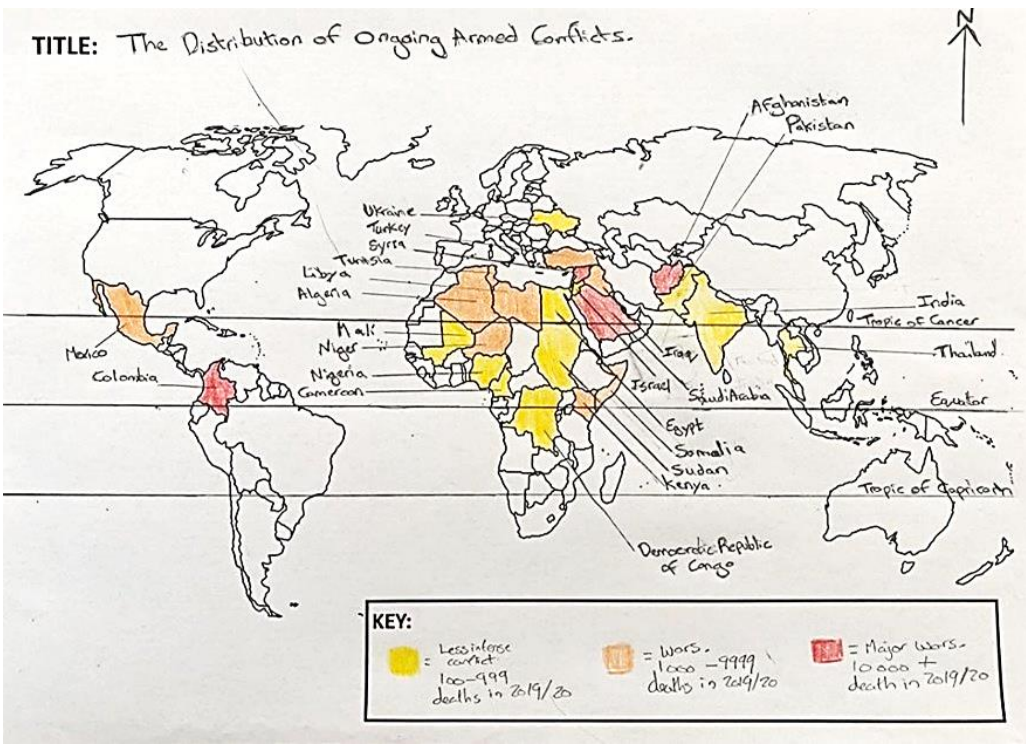 TITLE: The Distribution of Ongoing Armed Conflicts.
N
Afghanistan
Pakistan
Ukraine
Turkey
Syria
Tunisia
Libya
Algeria
Mali
Niger
Nigeria
Cameroon
Mexico
Colombia
India
Tropic of Cancer
Thailand
Iraq
Israel
Saudi Arabia
Equator
Egypt
Somalia
Sudan
Kenya
Tropic of Capricorn
Democratic Republic
of Congo
KEY:
= Less intense
conflict
100-999
deaths in 2019/20
= Wars.
1000-9999
deaths in 2019/20
= Major Wars.
10000+
death in 2019/20